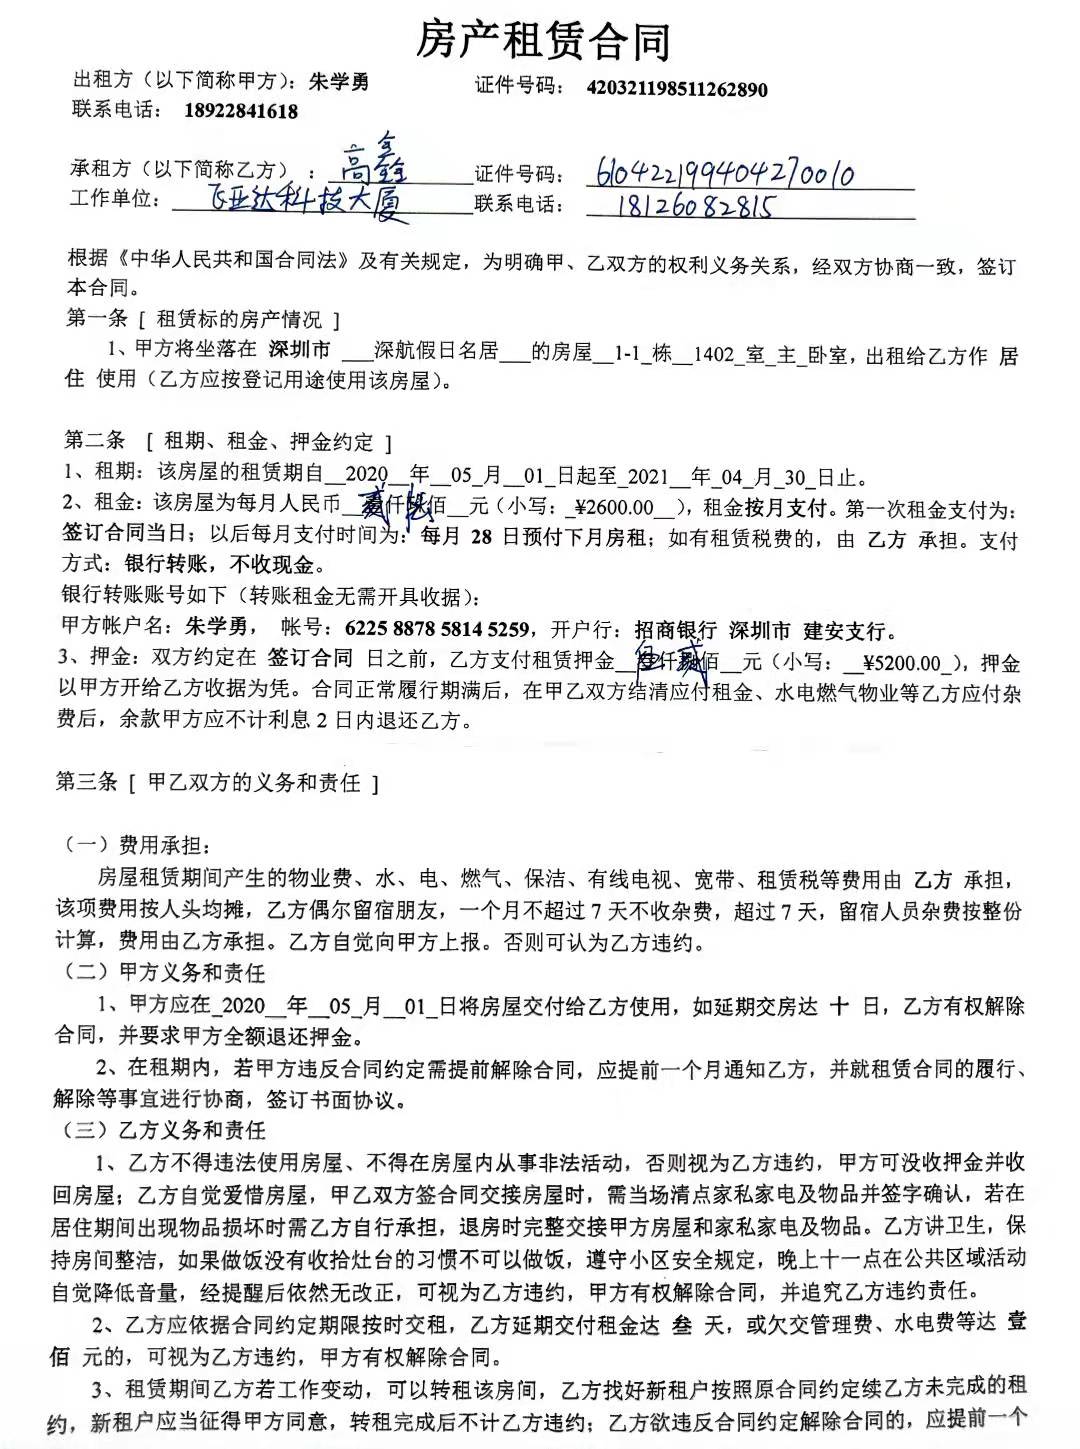 房产租赁合同
出租方（以下简称甲方）：朱学勇 证件号码： 420321198511262890
联系电话： 18922841618
承租方（以下简称乙方）：高鑫 证件号码： 610422199404270010
工作单位： 飞亚达科技大厦 联系电话： 18126082815
根据《中华人民共和国合同法》及有关规定，为明确甲、乙双方的权利义务关系，经双方协商一致，签订
本合同。
第一条 [ 租赁标的房产情况 ]
1、甲方将坐落在 深圳市 ___深航假日名居___的房屋__1-1_栋__1402_室_主_卧室，出租给乙方作 居
住 使用（乙方应按登记用途使用该房屋）。
第二条 [ 租期、租金、押金约定 ]
1、租期：该房屋的租赁期自__2020__年__05_月__01_日起至_2021__年_04_月_30_日止。
2、租金：该房屋为每月人民币__贰仟陆佰__元（小写：_¥2600.00__），租金按月支付。第一次租金支付为：
签订合同当日；以后每月支付时间为：每月 28 日预付下月房租；如有租赁税费的，由 乙方 承担。支付
方式：银行转账，不收现金。
银行转账账号如下（转账租金无需开具收据）：
甲方帐户名：朱学勇， 帐号：6225 8878 5814 5259，开户行：招商银行 深圳市 建安支行。
3、押金：双方约定在 签订合同 日之前，乙方支付租赁押金__伍仟贰佰__元（小写：__¥5200.00_），押金
以甲方开给乙方收据为凭。合同正常履行期满后，在甲乙双方结清应付租金、水电燃气物业等乙方应付杂
费后，余款甲方应不计利息 2 日内退还乙方。
第三条 [ 甲乙双方的义务和责任 ]
（一）费用承担：
房屋租赁期间产生的物业费、水、电、燃气、保洁、有线电视、宽带、租赁税等费用由 乙方 承担，
该项费用按人头均摊，乙方偶尔留宿朋友，一个月不超过 7 天不收杂费，超过 7 天，留宿人员杂费按整份
计算，费用由乙方承担。乙方自觉向甲方上报。否则可认为乙方违约。
（二）甲方义务和责任
1、甲方应在_2020__年__05_月__01_日将房屋交付给乙方使用，如延期交房达 十 日，乙方有权解除
合同，并要求甲方全额退还押金。
2、在租期内，若甲方违反合同约定需提前解除合同，应提前一个月通知乙方，并就租赁合同的履行、
解除等事宜进行协商，签订书面协议。
（三）乙方义务和责任
1、乙方不得违法使用房屋、不得在房屋内从事非法活动，否则视为乙方违约，甲方可没收押金并收
回房屋；乙方自觉爱惜房屋，甲乙双方签合同交接房屋时，需当场清点家私家电及物品并签字确认，若在
居住期间出现物品损坏时需乙方自行承担，退房时完整交接甲方房屋和家私家电及物品。乙方讲卫生，保
持房间整洁，如果做饭没有收拾灶台的习惯不可以做饭，遵守小区安全规定，晚上十一点在公共区域活动
自觉降低音量，经提醒后依然无改正，可视为乙方违约，甲方有权解除合同，并追究乙方违约责任。
2、乙方应依据合同约定期限按时交租，乙方延期交付租金达 叁 天，或欠交管理费、水电费等达 壹
佰 元的，可视为乙方违约，甲方有权解除合同。
3、租赁期间乙方若工作变动，可以转租该房间，乙方找好新租户按照原合同约定续乙方未完成的租
约，新租户应当征得甲方同意，转租完成后不计乙方违约；乙方欲违反合同约定解除合同的，应提前一个